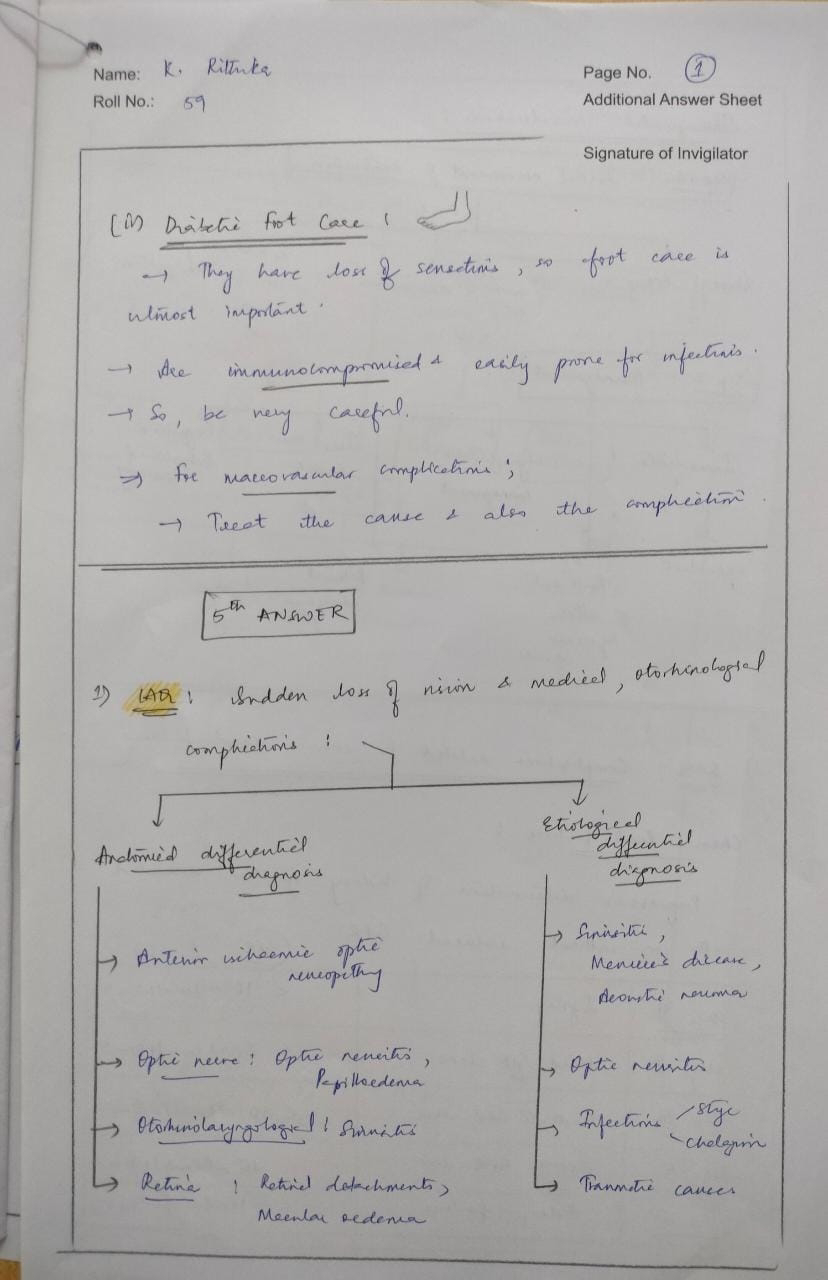 Name: K. Rithika
Page No. 1
Roll No.: 59
Additional Answer Sheet
Signature of Invigilator
Diabetic foot Care :
→ They have loss of sensations, so foot care is
utmost important.
→ Are immunocompromised & easily prone for infections.
→ So, be very careful.
⇒ For macrovascular complications ;
→ Treat the cause & also the complication.
5th ANSWER
1) LAQ : Sudden loss of vision & medical, otorhinological
complications :
Anatomical differential
diagnosis
Etiological
differential
diagnosis
→ Anterior ischaemic optic
neuropathy
→ Sinusitis,
Meniere's disease,
Acoustic neuroma
→ Optic nerve : Optic neuritis,
Papilloedema
→ Optic neuritis
→ Otorhinolaryngological : Sinusitis
→ Infections
Stye
Chalazion
→ Retina : Retinal detachments,
Macular oedema
→ Traumatic causes